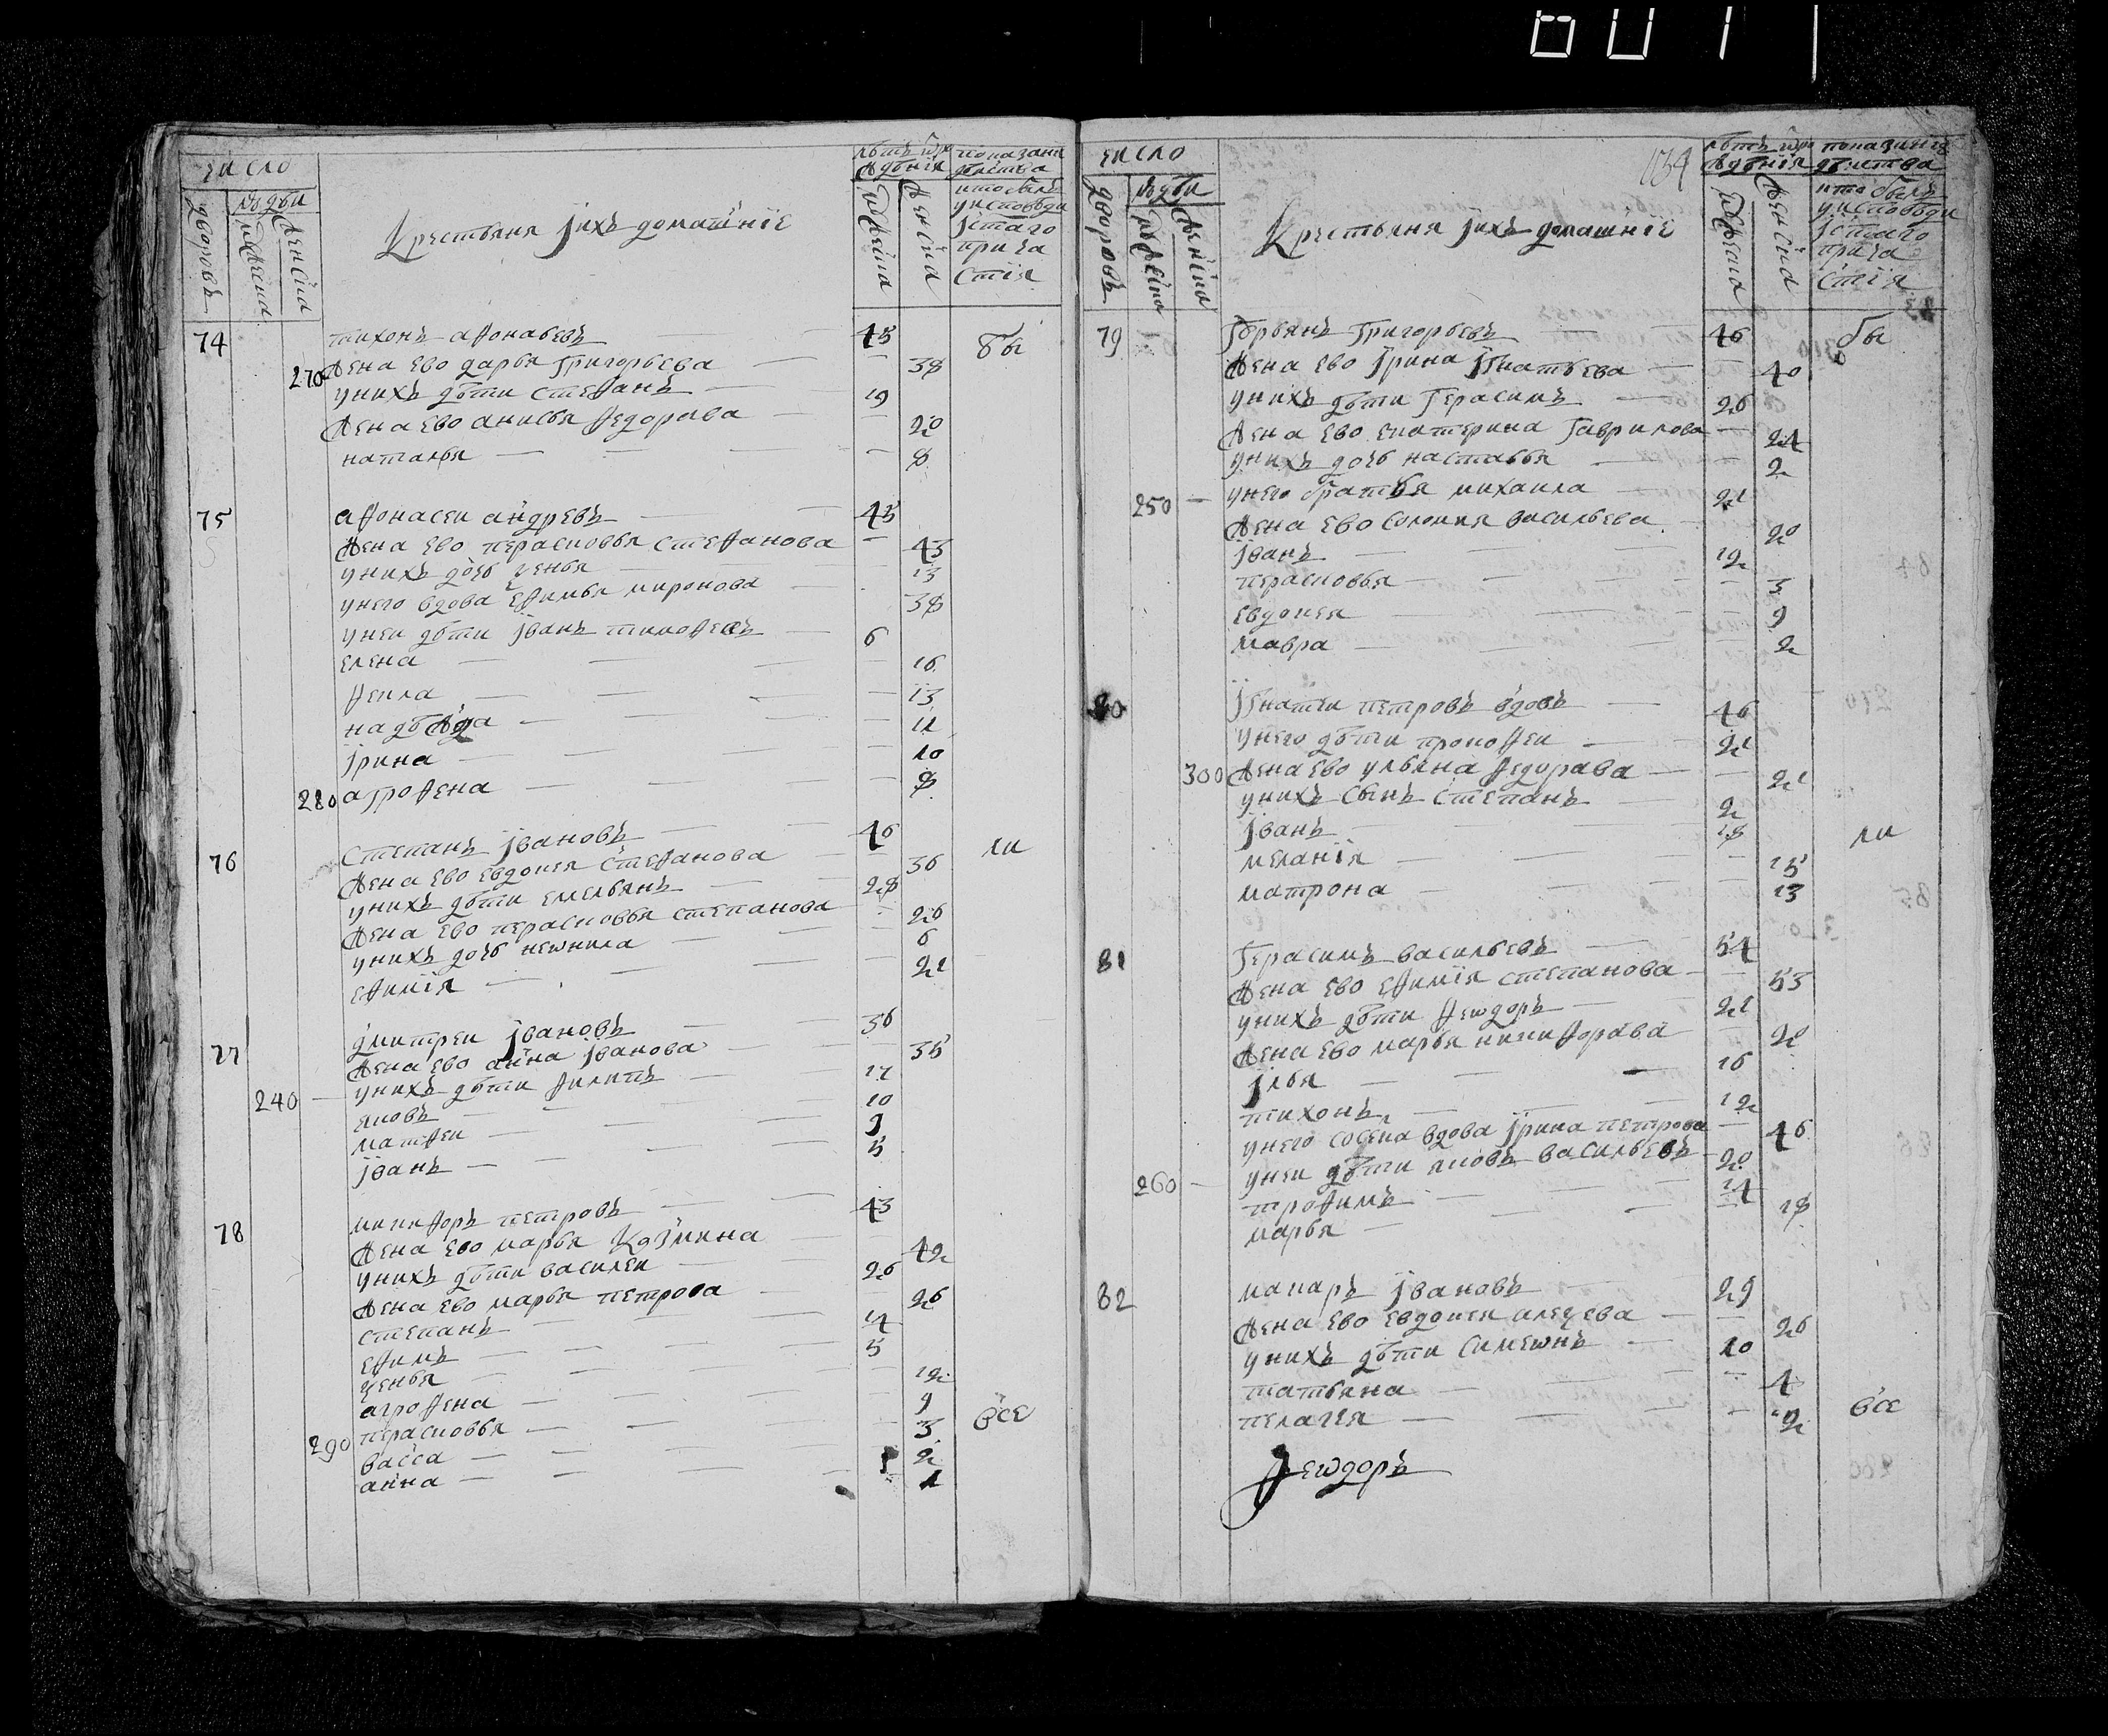 число
людеи
дворовъ
мужеска
женска
Крестьяня іихъ домашніе
лѣтъ ѿ рождѣнія
мужеска
женска
показание дѣиства
кто былъ
уисповѣди
істаго
прича
стія
74 тихонъ афонасьевъ 45 бы
270 жена ево дарья григорьева 38
унихъ дѣти стефанъ 19
жена ево анисья федорава 20
наталья 8
75 афонасеи андревъ 45
жена ево перасковья стефанова 43
унихъ дочь 13
унего вдова ефимья миронова 38
унеи дѣти іванъ тимофеевъ 6
елена 16
фекла 13
надѣжда 11
ірина 10
280 агрофена 8
76 степанъ івановъ 46 ли
жена ево евдокея стефанова 36
унихъ дѣти емельянъ 28
жена ево перасковья степанова 26
унихъ дочь неѡнила 6
ефимія 21
77 дмитреи івановъ 36
жена ево анна іванова 35
унихъ дѣти филипъ 14
240 яковъ 10
матфеи 9
іванъ 5
78 никифоръ петровъ 43
жена ево марья Козмина 42
унихъ дѣти василеи 26
жена ево марья петрова 26
степанъ 14
ефимъ 5
12
агрофена 9
290 перасковья 3
васса 2
анна 1
все
число
дворовъ
людеи
мужеска
женска
134
Крестьяня іихъ домашніе
лѣтъ ѿ рождѣнія
мужеска
женска
показание дѣиства
кто былъ
уисповѣди
істаго
прича
стія
79 Григорьевъ 46 бы
жена ево ірина ігнатьева 40
унихъ дѣти герасимъ 26
жена ево екатерина гаврилова 24
унихъ дочь настасья 2
250 унего братья михаила 21
жена ево соломия васильева 20
іванъ 12
перасковья 3
евдокея 9
мавра 2
80 ігнатеи петровъ вдовъ 46
унего дѣти прокофеи 21
300 жена ево ульяна федорава 21
унихъ сынъ степанъ 2
іванъ 18
меланія 15
матрона 13
ли
81 герасимъ васильевъ 54
жена ево ефимія степанова 53
унихъ дѣти феѡдоръ 21
жена ево марья никифорава 20
ілья 16
тихонъ 12
унего соседка вдова ірина петрова 46
260 унеи дѣти яковъ васильевъ 20
трофимъ 14
марья 18
82 макаръ івановъ 29
жена ево евдокея алеѯева 26
унихъ дѣти симеѡнъ 10
татьяна 4
пелагея 2
все
Феѡдоръ